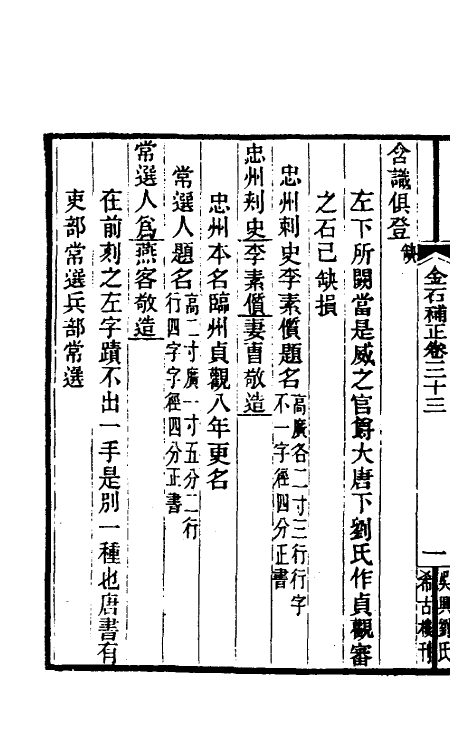 金石補正卷三十三
一
吳興劉氏
希古樓刊
含識俱登缺
左下所闕當是威之官爵大唐下劉氏作貞觀審
之石已缺損
忠州刺史李素傎題名高廣各二寸三行行字
不一字徑四分正書
忠州刾史李素傎妻曺敬造
忠州本名臨州貞觀八年更名
常選人題名高二寸廣一寸五分二行
行四字字徑四分正書
常選人爲燕客敬造
在前刻之左字蹟不出一手是別一種也唐書有
吏部常選兵部常選